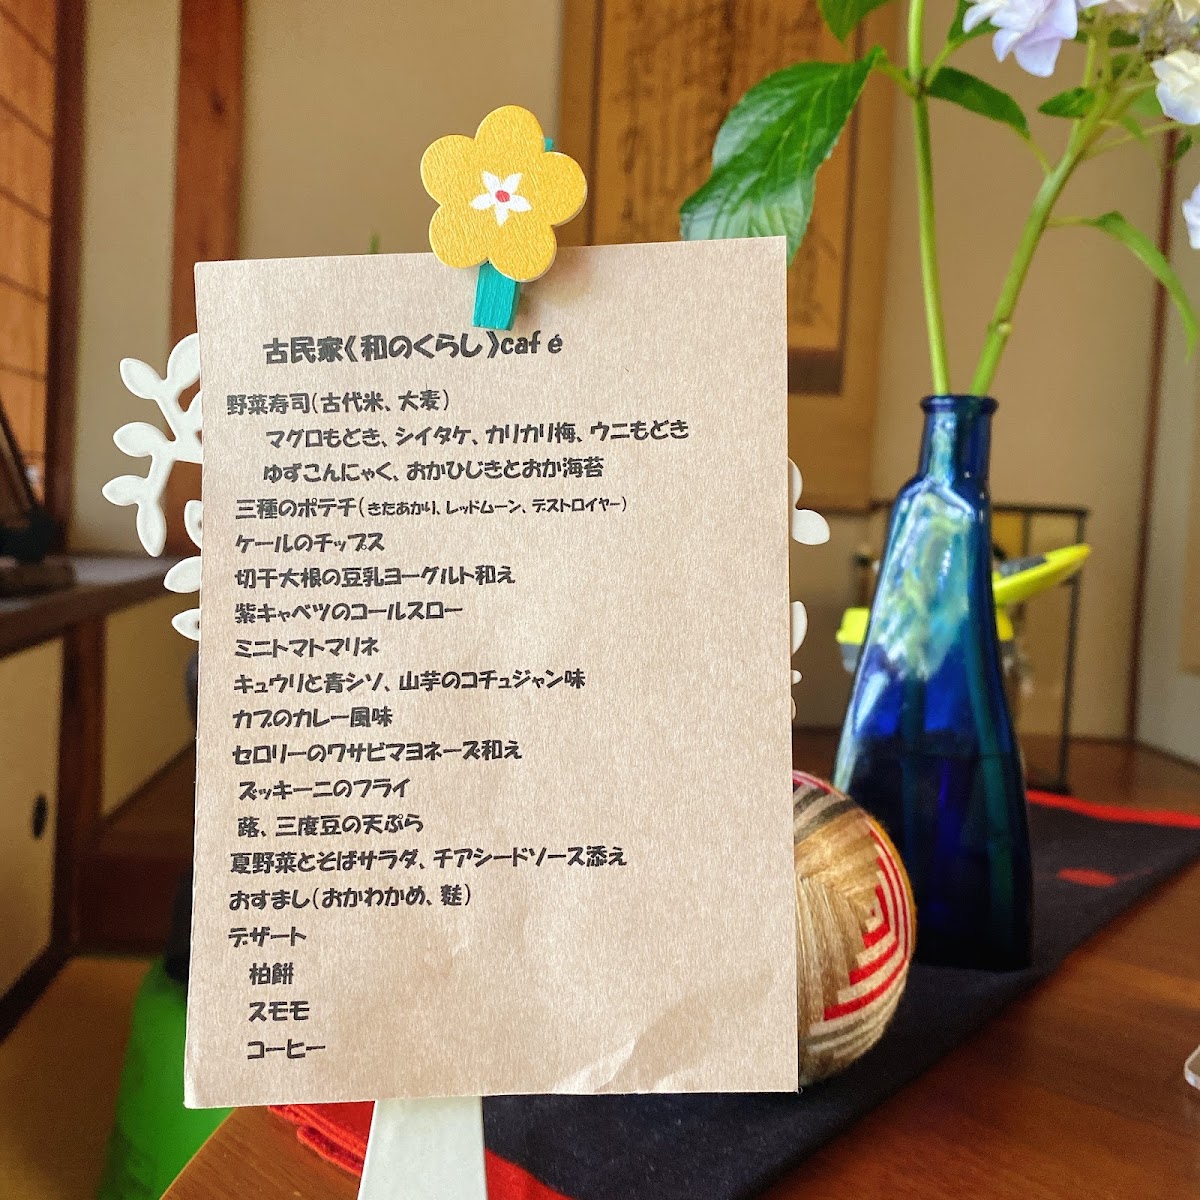 古民家《和のくらし》café
野菜寿司(古代米、大麦)
マグロもどき、シイタケ、カリカリ梅、ウニもどき
ゆずこんにゃく、おかひじきとおか海苔
三種のポテチ(きたあかり、レッドムーン、デストロイヤー)
ケールのチップス
切干大根の豆乳ヨーグルト和え
紫キャベツのコールスロー
ミニトマトマリネ
キュウリと青シソ、山芋のコチュジャン味
カブのカレー風味
セロリーのワサビマヨネーズ和え
ズッキーニのフライ
蕗、三度豆の天ぷら
夏野菜とそばサラダ、チアシードソース添え
おすまし(おかわかめ、麩)
デザート
柏餅
スモモ
コーヒー